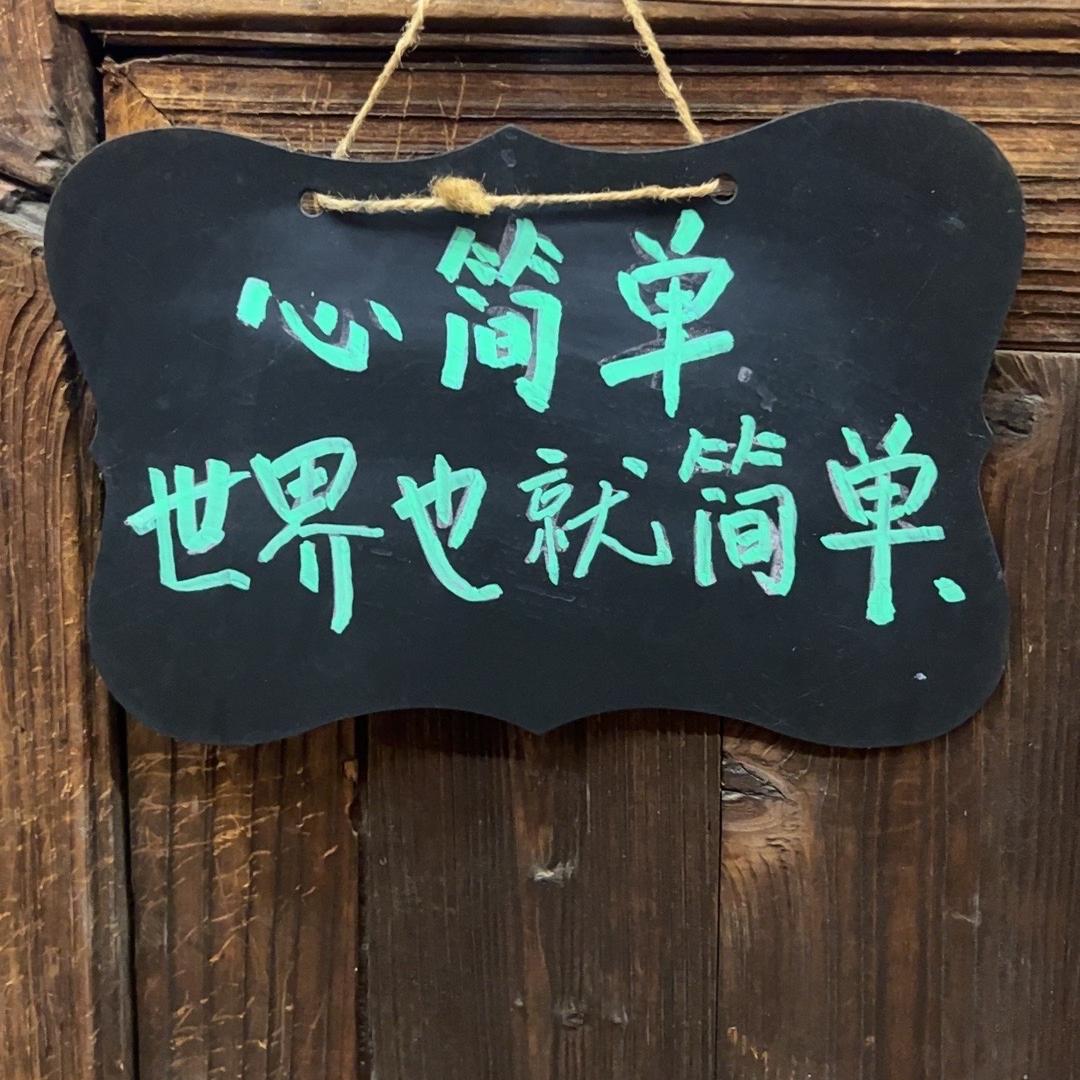 心简单
世界也就简单.